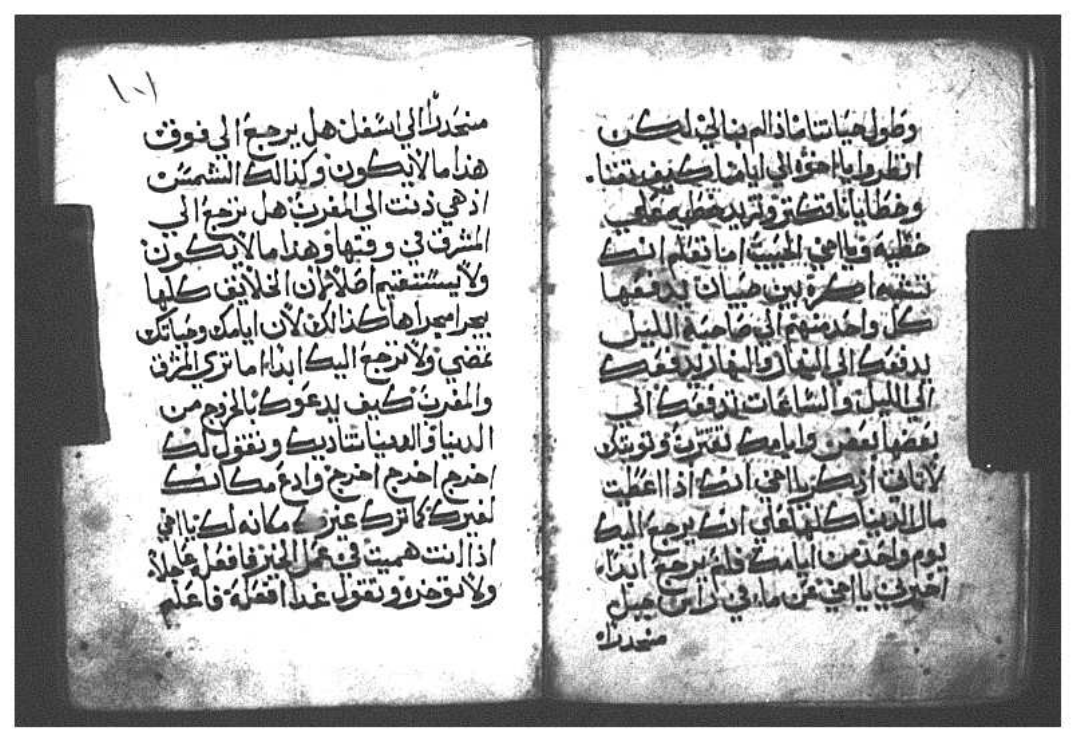 وطول حياتنا ماذا لم ينالي لكن
انظروا يا اخوه الي ايامنا كيف تفنا.
وخطايانا تكتر وتزيد خطيه علي
خطية ويا اخي الحبيب اما تعلم انك
تشبه اكرة بين صبيان يدفعها
كل واحد منهم الي صاحبه الليل
يدفعك الي النهار والنهار يدفعك
الي الليل والساعات تدفعك الي
بعضها بعض وايامك تقترب وتوبتك
لا تاتي اذكر يا اخي انك اذا اعطيت
مال الدنيا كلها علي انك يرجع اليك
يوم واحد من ايامك فلم يرجع ابداء
اخبرني يا اخي عن ماء في راس جبل
منحدراء
١٠١
منحدراً الي اسفل هل يرجع الي فوق
هذا ما لا يكون وكذالك الشمس
اذ هي دنت الي المغرب هل ترجع الي
المشرق في وقتها وهذا ما لا يكون
ولا يستقيم اصلا لان الخلايق كلها
يجرا مجراها كذالك لان ايامك وحياتك
تمضي ولا ترجع اليك ابداء اما تري المشرق
والمغرب كيف يدعوك بالخروج من
الدنيا والدنيا تناديك وتقول لك
اخرج اخرج اخرج وادع مكانك
لغيرك كما ترك غيرك مكانه لك يا اخي
اذا انت هميت في عمل الخير فافعل عاجلاً
ولا توخره وتقول غدا افعله فاعلم